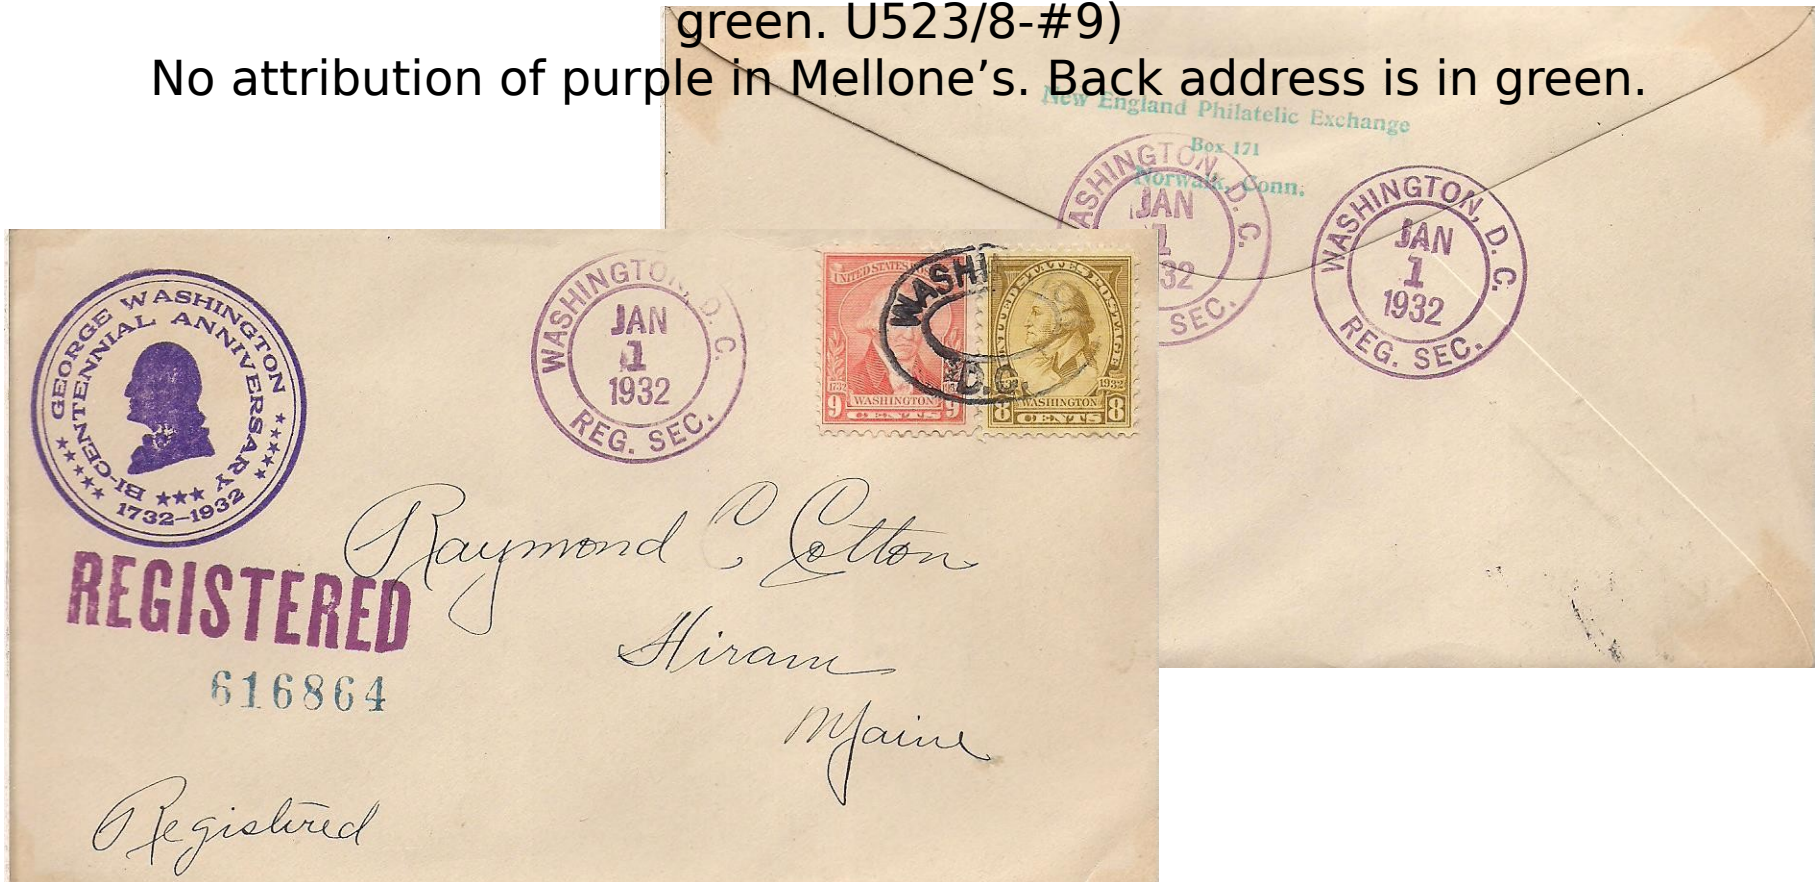 green. U523/8-#9)
No attribution of purple in Mellone’s. Back address is in green.
New England Philatelic Exchange
Box 171
Norwalk, Conn.
WASHINGTON, D. C.
JAN
1
32
SEC.
WASHINGTON, D. C.
JAN
1
1932
REG. SEC.
GEORGE WASHINGTON
BI-CENTENNIAL ANNIVERSARY
1732-1932
WASHINGTON, D. C.
JAN
1
1932
REG. SEC.
UNITED STATES
1732
WASHINGTON
9 CENTS 9
WASHI
D.C.
1932
WASHINGTON
8 CENTS 8
REGISTERED
616864
Raymond C Cotton
Hiram
Maine
Registered